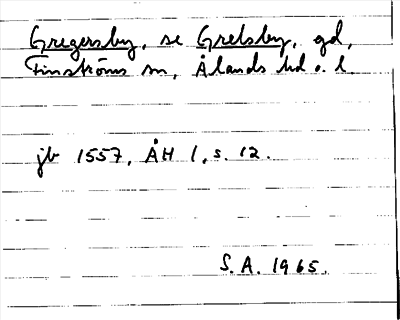 Gregersby, se Grelsby, gd,
Finströms sn, Ålands hd o. l.
jb 1557, ÅH 1, s. 12.
S. A. 1965.